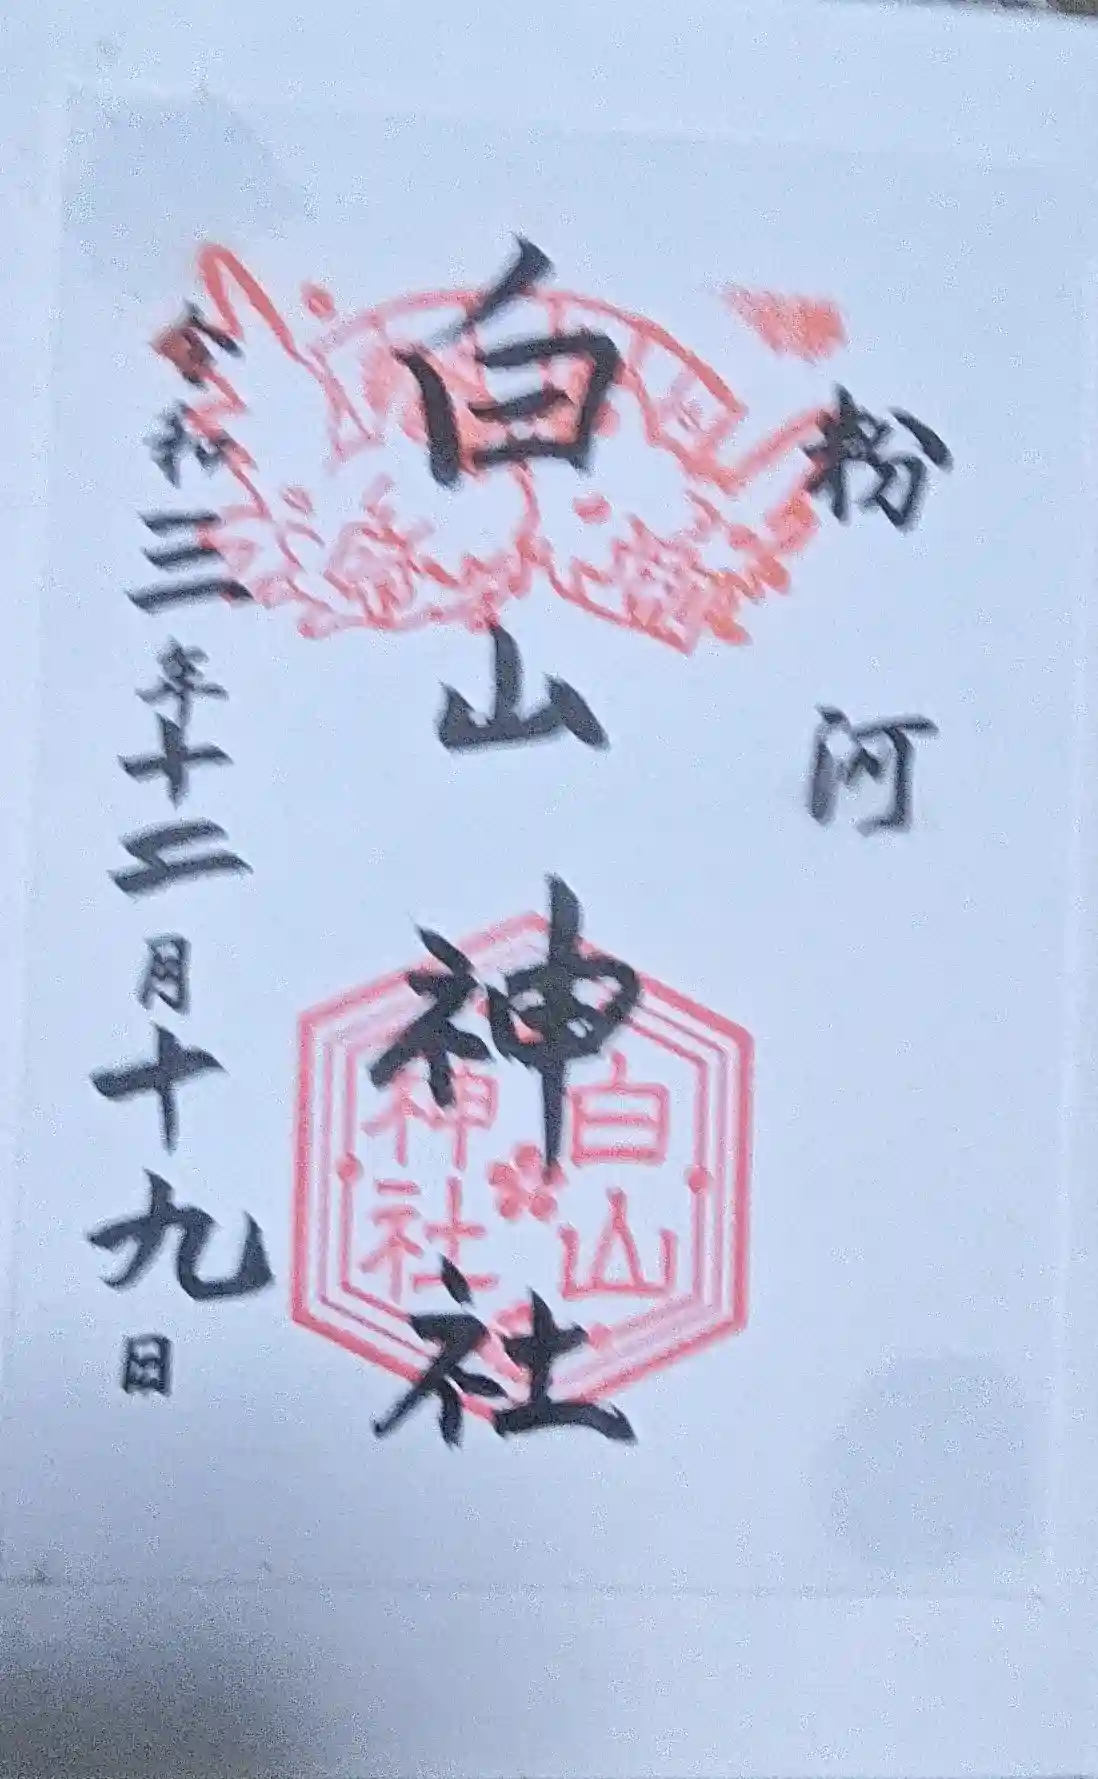 粉河
白山神社
白山
神社
令和三年十二月十九日